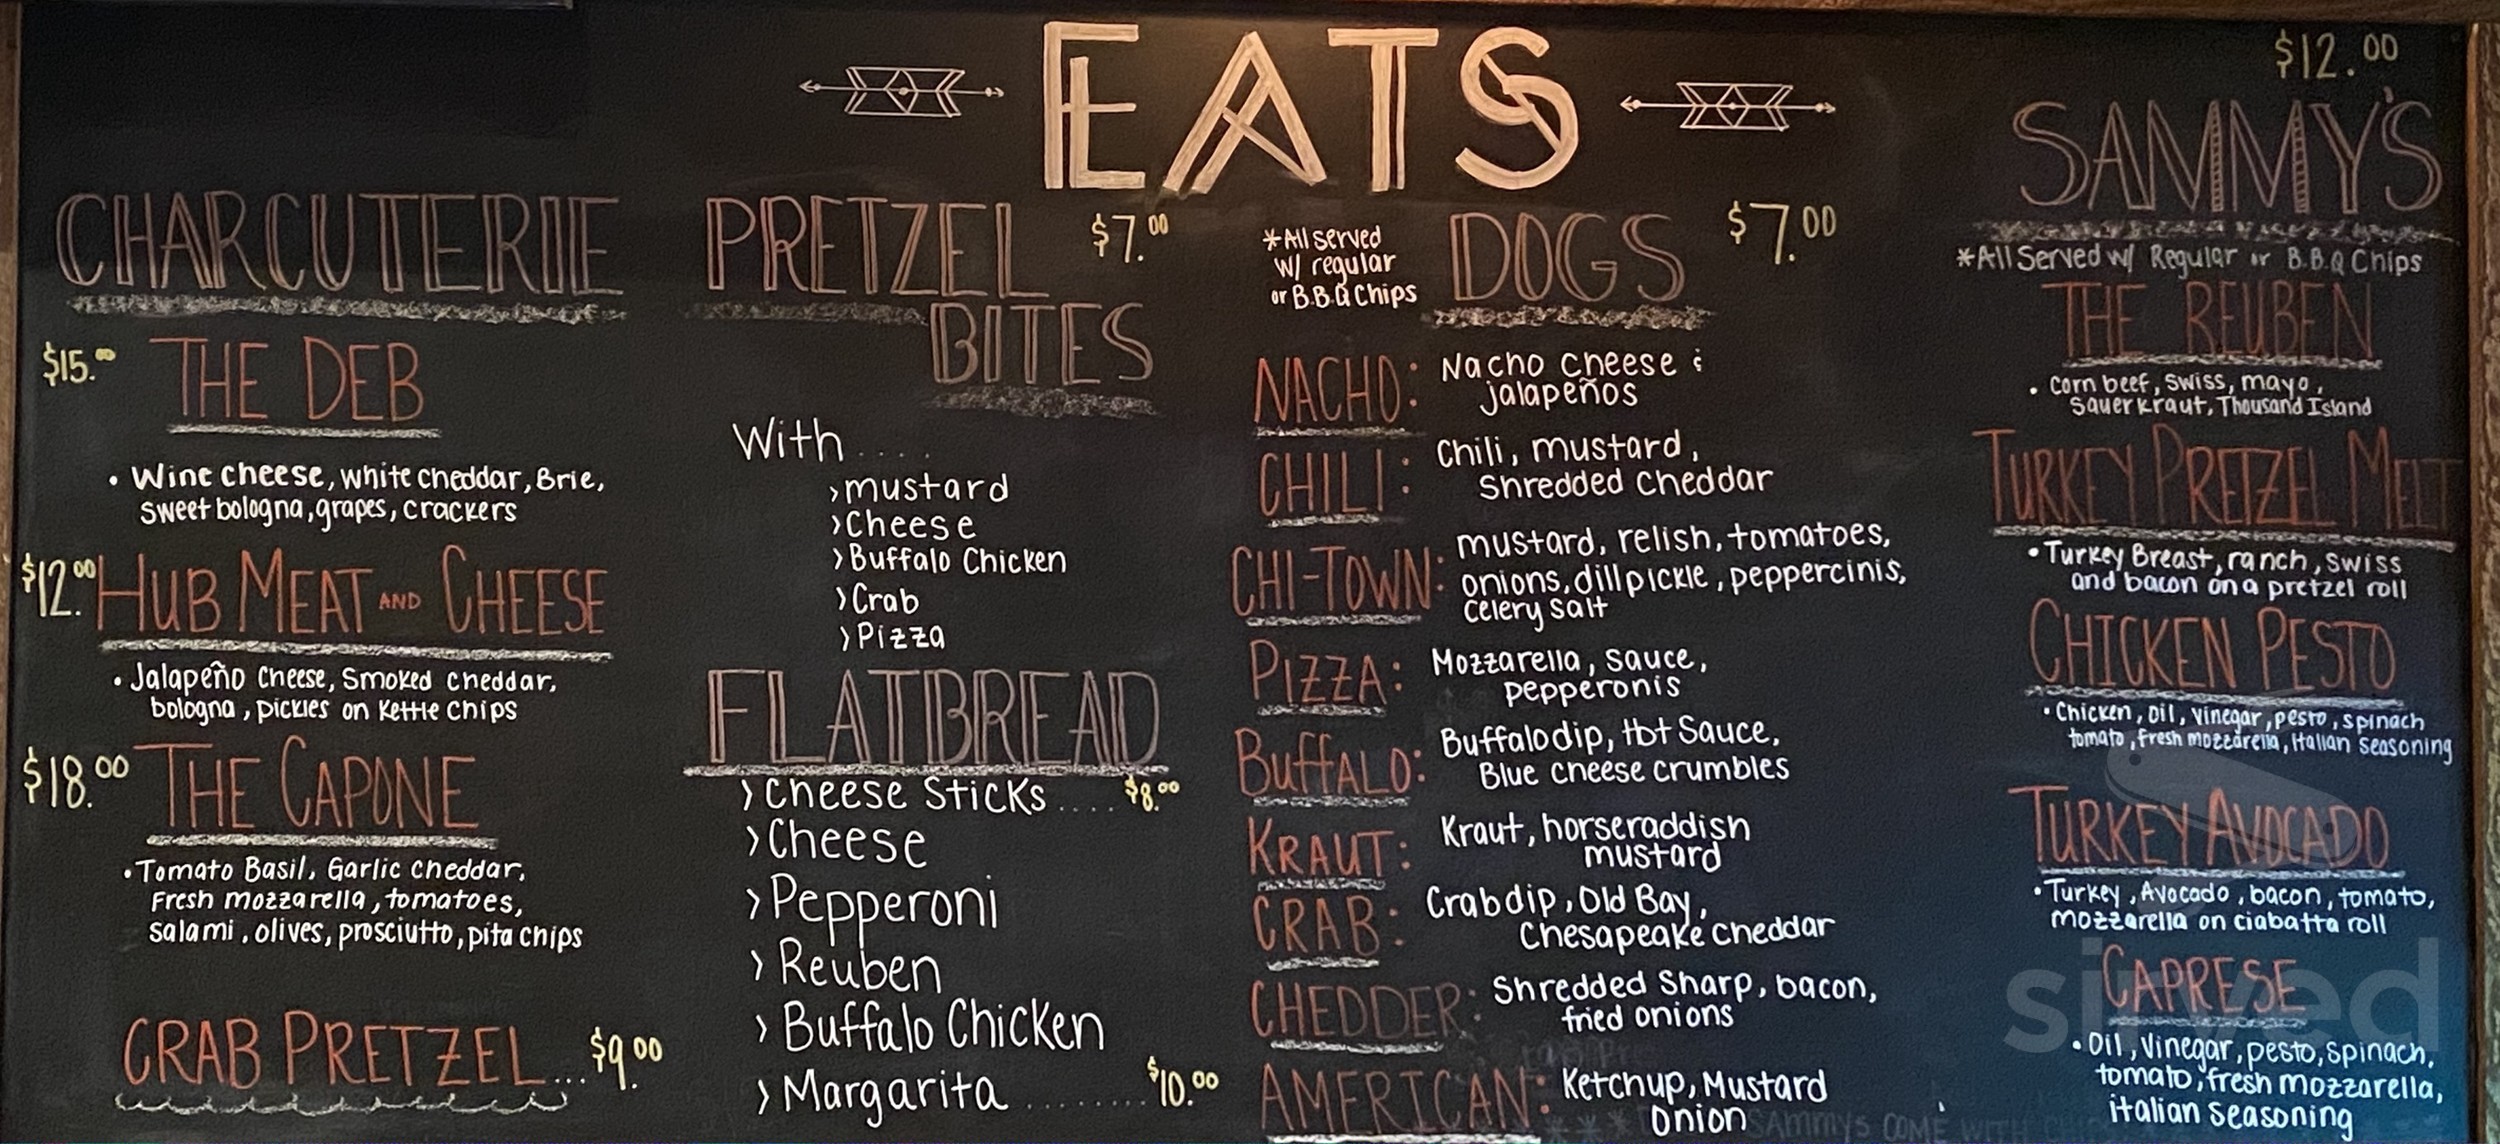 EATS
CHARCUTERIE
$15.00 THE DEB
• Wine cheese, white cheddar, Brie,
sweet bologna, grapes, crackers
$12.00 HUB MEAT AND CHEESE
• Jalapeño Cheese, Smoked cheddar,
bologna, pickles on Kettle chips
$18.00 THE CAPONE
• Tomato Basil, Garlic cheddar,
Fresh mozzarella, tomatoes,
salami, olives, prosciutto, pita chips
CRAB PRETZEL... $9.00
PRETZEL $7.00
BITES
With....
> mustard
> Cheese
> Buffalo Chicken
> Crab
> Pizza
FLATBREAD
> Cheese Sticks.... $8.00
> Cheese
> Pepperoni
> Reuben
> Buffalo Chicken
> Margarita......... $10.00
*All served
w/ regular
or B.B.Q Chips
DOGS $7.00
NACHO: Nacho cheese &
jalapeños
CHILI: Chili, mustard,
Shredded Cheddar
CHI-TOWN: mustard, relish, tomatoes,
onions, dill pickle, peppercinis,
celery salt
PIZZA: Mozzarella, sauce,
pepperonis
BUFFALO: Buffalo dip, Hot Sauce,
Blue cheese crumbles
KRAUT: Kraut, horseraddish
mustard
CRAB: Crab dip, Old Bay,
Chesapeake cheddar
CHEDDER: Shredded Sharp, bacon,
fried onions
AMERICAN: Ketchup, Mustard
Onion
SAmmys COME WITH
$12.00
SAMMY'S
*All Served w/ Regular or B.B.Q Chips
THE REUBEN
• Corn beef, swiss, mayo,
sauerkraut, Thousand Island
TURKEY PRETZEL MELT
• Turkey Breast, ranch, swiss
and bacon on a pretzel roll
CHICKEN PESTO
• Chicken, oil, vinegar, pesto, spinach
tomato, fresh mozzarella, Italian seasoning
TURKEY AVOCADO
• Turkey, Avocado, bacon, tomato,
mozzarella on ciabatta roll
CAPRESE
• Oil, vinegar, pesto, spinach,
tomato, fresh mozzarella,
italian seasoning
sirved